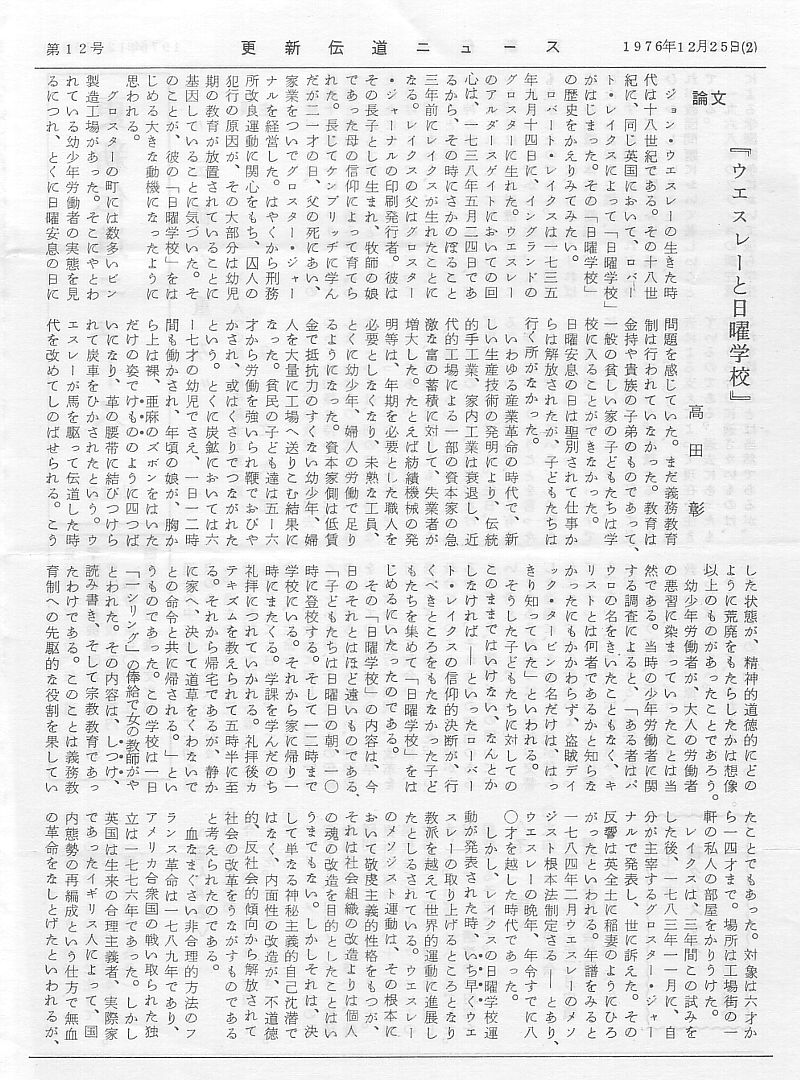 第12号
更新伝道ニュース
1976年12月25日(2)
論文
『ウエスレーと日曜学校』
高田 彰
ジョン・ウエスレーの生きた時
代は十八世紀である。その十八世
紀に、同じ英国において、ロバー
ト・レイクスによって「日曜学校」
がはじまった。その「日曜学校」
の歴史をかえりみてみたい。
ロバート・レイクスは一七三五
年九月十四日に、イングランドの
グロスターに生れた。ウエスレー
のアルダースゲイトにおいての回
心は、一七三八年五月二四日であ
るから、その時にさかのぼること
三年前にレイクスが生れたことに
なる。レイクスの父はグロスター
・ジャーナルの印刷発行者。彼は
その長子として生まれ、牧師の娘
であった母の信仰によって育てら
れた。長じてケンブリッヂに学ん
だが二一才の日、父の死にあい、
家業をついでグロスター・ジャー
ナルを経営した。はやくから刑務
所改良運動に関心をもち、囚人の
犯行の原因が、その大部分は幼児
期の教育が放置されていることに
基因していることに気づいた。そ
のことが、彼の「日曜学校」をは
じめる大きな動機になったように
思われる。
グロスターの町には数多いピン
製造工場があった。そこにやとわ
れている幼少年労働者の実態を見
るにつれ、とくに日曜安息の日に
問題を感じていた。まだ義務教育
制は行われていなかった。教育は
金持や貴族の子弟のものであって、
一般の貧しい家の子どもたちは学
校に入ることができなかった。
日曜安息の日は聖別されて仕事か
らは解放されたが、子どもたちは
行く所がなかった。
いわゆる産業革命の時代で、新
しい生産技術の発明により、伝統
的手工業、家内工業は衰退し、近
代的工場による一部の資本家の急
激な富の蓄積に対して、失業者が
増大した。たとえば紡績機械の発
明等は、年期を必要とした職人を
必要としなくなり、未熟な工員、
とくに幼少年、婦人の労働で足り
るようになった。資本家側は低賃
金で抵抗力のすくない幼少年、婦
人を大量に工場へ送りこむ結果に
なった。貧民の子ども達は五ー六
才から労働を強いられ鞭でおびや
かされ、或はくさりでつながれた
という。とくに炭鉱においては六
ー七才の幼児でさえ、一日一二時
間も働かされ、年頃の娘が、胸か
ら上は裸、亜麻のズボンをはいた
だけの姿でけもののように四つば
いになり、革の腰帯に結びつけら
れて炭車をひかされたという。ウ
エスレーが馬を駆って伝道した時
代を改めてしのばせられる。こう
した状態が、精神的道徳的にどの
ように荒廃をもたらしたかは想像
以上のものがあったことであろう。
幼少年労働者が、大人の労働者
の悪習に染まっていったことは当
然である。当時の少年労働者に関
する調査によると、「ある者はパ
ウロの名をきいたこともなく、キ
リストとは何者であるかと知らな
かったにもかかわらず、盗賊デイ
ック・タービンの名だけは、はっ
きり知っていた」といわれる。
そうした子どもたちに対しての
このままではいけない、なんとか
しなければ——といったローバー
ト・レイクスの信仰的決断が、行
くべきところをもたなかった子ど
もたちを集めて「日曜学校」をは
じめるにいたったのである。
その「日曜学校」の内容は、今
日のそれとはほど遠いものである、
「子どもたちは日曜日の朝、一〇
時に登校する。そして一二時まで
学校にいる。それから家に帰り一
時にまたくる。学課を学んだのち
礼拝につれていかれる。礼拝後カ
テキズムを教えられて五時半に至
る。それから帰宅であるが、静か
に家へ、決して道草をくわないで
との命令と共に帰される。」とい
うものであった。この学校は一日
「一シリング」の俸給で女の教師がや
とわれた。その内容は、しつけ、
読み書き、そして宗教教育であっ
たわけである。このことは義務教
育制への先駆的な役割を果してい
たことでもあった。対象は六才か
ら一四才まで。場所は工場街の一
軒の私人の部屋をかりうけた。
レイクスは、三年間この試みを
した後、一七八三年一一月に、自
分が主宰するグロスター・ジャー
ナルで発表し、世に訴えた。その
反響は英全土に稲妻のようにひろ
がったといわれる。年譜をみると
一七八四年二月ウエスレーのメソ
ジスト根本法制定さる——とあり、
ウエスレーの晩年、年令すでに八
〇才を越した時代であった。
しかし、レイクスの日曜学校運
動が発表された時、いち早くウエ
スレーの取り上げるところとなり
教派を越えて世界的運動に進展し
たとしるされている。ウエスレー
のメソジスト運動は、その根本に
おいて敬虔主義的性格をもつが、
それは社会組織の改造よりは個人
の魂の改造を目的としたことはい
うまでもない。しかしそれは、決
して単なる神秘主義的自己沈潜で
はなく、内面性の改造が、不道徳
的、反社会的傾向から解放されて
社会の改革をうながすものである
と考えられたのである。
血なまぐさい非合理的方法のフ
ランス革命は一七八九年であり、
アメリカ合衆国の戦い取られた独
立は一七七六年であった。しかし
英国は生来の合理主義者、実際家
であったイギリス人によって、国
内態勢の再編成という仕方で無血
の革命をなしとげたといわれるが、